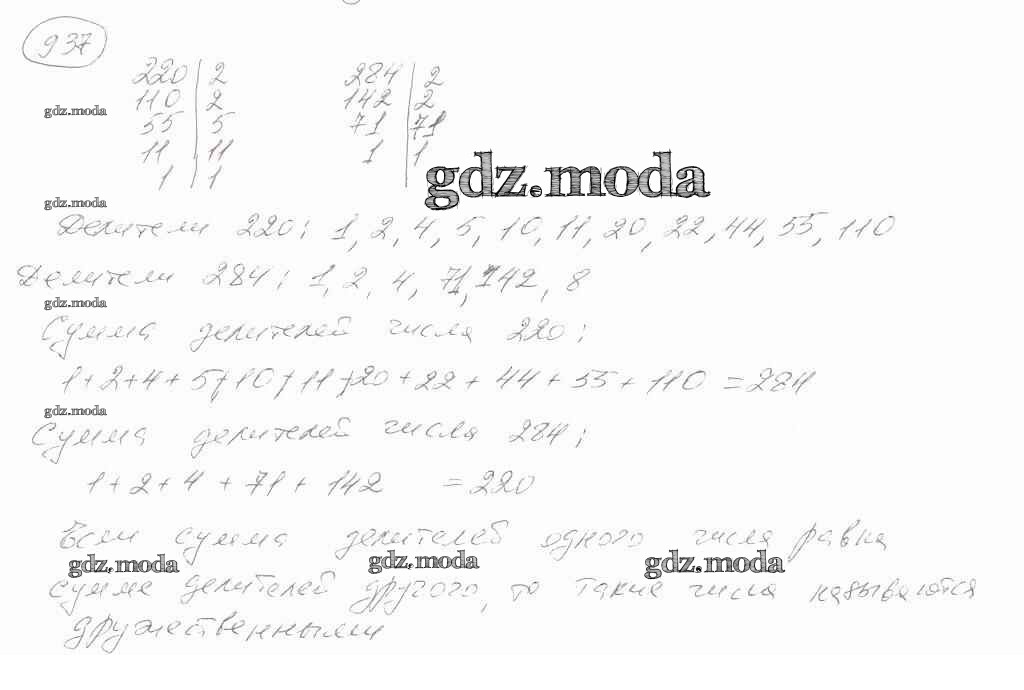 937
220 | 2 284 | 2
110 | 2 142 | 2
gdz.moda
55 | 5 71 | 71
11 | 11 1 | 1
1 | 1
gdz.moda
gdz.moda
Делители 220: 1, 2, 4, 5, 10, 11, 20, 22, 44, 55, 110
Делители 284: 1, 2, 4, 71, 142, 8
gdz.moda
Сумма делителей числа 220:
1+2+4+5+10+11+20+22+44+55+110 = 284
gdz.moda
Сумма делителей числа 284:
1+2+4+71+142 = 220
Если сумма делителей одного числа равна
gdz.moda gdz.moda gdz.moda
сумме делителей другого, то такие числа называются
дружественными